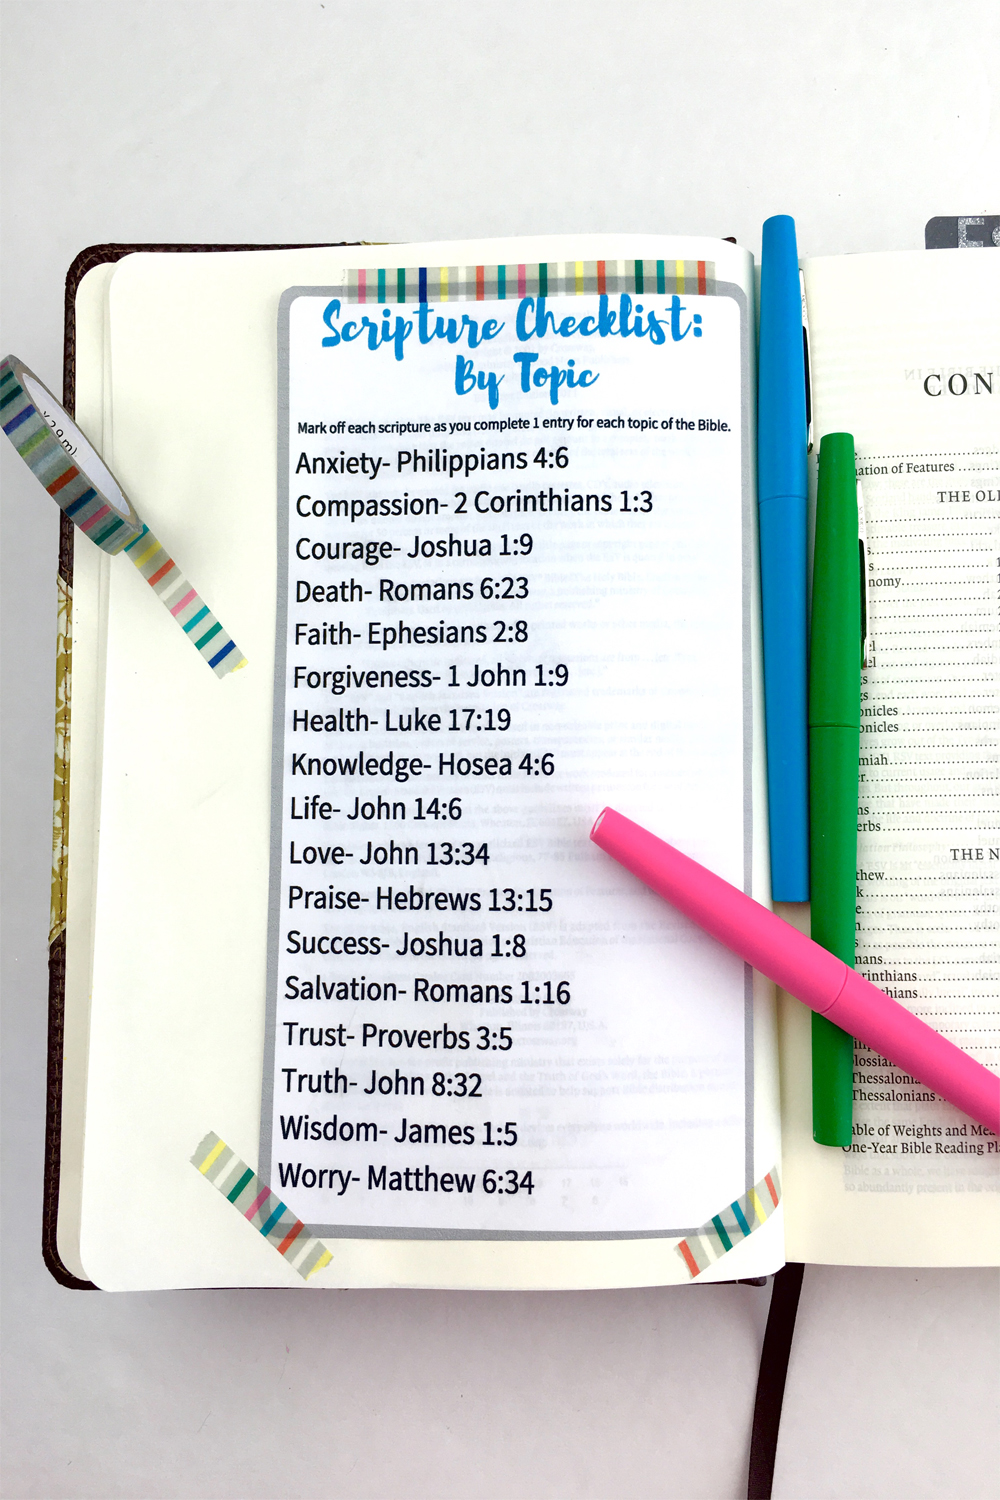 Scripture Checklist:
By Topic
Mark off each scripture as you complete 1 entry for each topic of the Bible.
Anxiety- Philippians 4:6
Compassion- 2 Corinthians 1:3
Courage- Joshua 1:9
Death- Romans 6:23
Faith- Ephesians 2:8
Forgiveness- 1 John 1:9
Health- Luke 17:19
Knowledge- Hosea 4:6
Life- John 14:6
Love- John 13:34
Praise- Hebrews 13:15
Success- Joshua 1:8
Salvation- Romans 1:16
Trust- Proverbs 3:5
Truth- John 8:32
Wisdom- James 1:5
Worry- Matthew 6:34
x 2.9 m)
CON
ation of Features
THE OL
onomy
onicles
onicles
miah
erbs
THE N
thew
mans
rinthians
thians
olossia
Thessalonia
Thessalonians
able of Weights and Mea
One-Year Bible Reading Pla